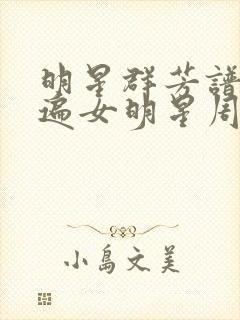 明星群芳譜
遍女明星周
小島文美